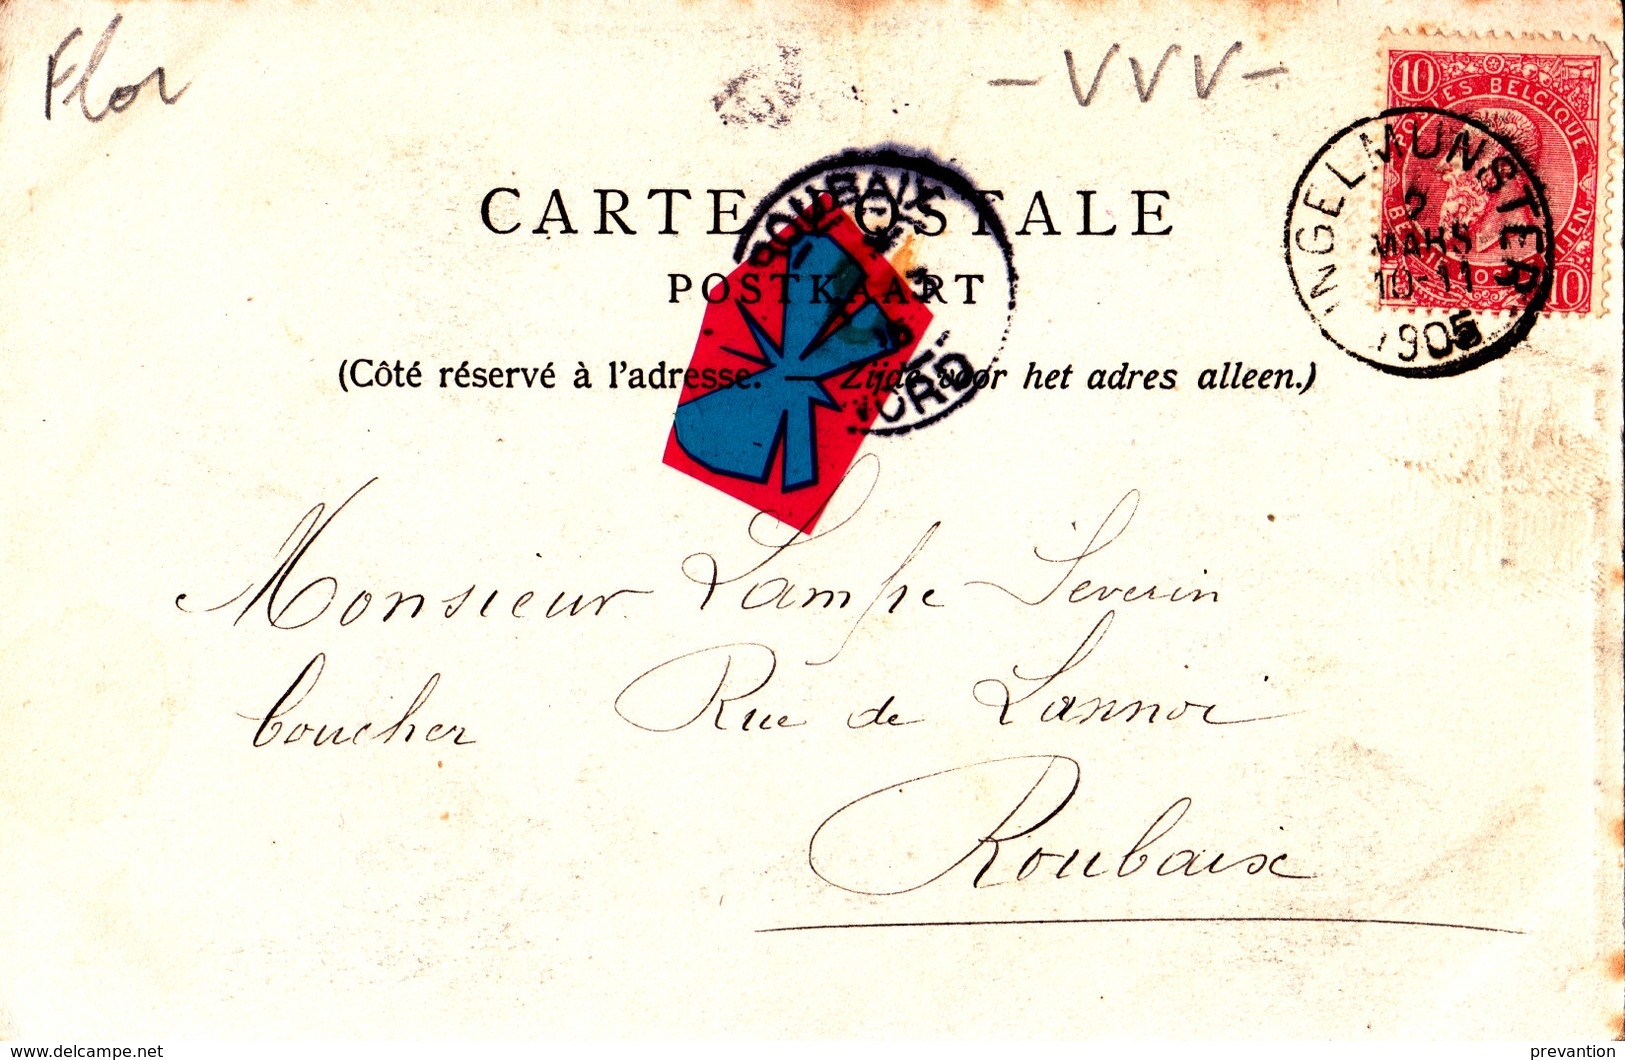 Flor
- VVV -
10 10
POSTES BELGIQUE
INGELMUNSTER
2
MARS
10-11
1905
ROUBAIX
NORD
CARTE POSTALE
POSTKAART
(Côté réservé à l'adresse. — Zijde voor het adres alleen.)
Monsieur Lampe Severin
boucher Rue de Lannoi
Roubaix
delcampe.net
prevantion